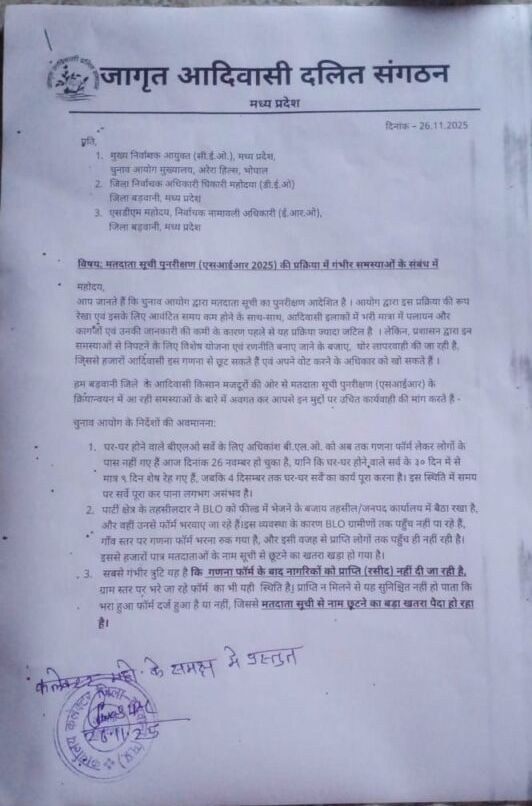 जागृत आदिवासी दलित संगठन
मध्य प्रदेश
दिनांक – 26.11.2025
प्रति,
1. मुख्य निर्वाचक आयुक्त (सी.ई.ओ.), मध्य प्रदेश,
चुनाव आयोग मुख्यालय, अरेरा हिल्स, भोपाल
2. जिला निर्वाचक अधिकारी धिकारी महोदया (डी.ई.ओ)
जिला बड़वानी, मध्य प्रदेश
3. एसडीएम महोदय, निर्वाचक नामावली अधिकारी (ई.आर.ओ).
जिला बड़वानी, मध्य प्रदेश
विषय: मतदाता सूची पुनरीक्षण (एसआईआर 2025) की प्रक्रिया में गंभीर समस्याओं के संबंध में
महोदय,
आप जानते हैं कि चुनाव आयोग द्वारा मतदाता सूची का पुनरीक्षण आदेशित है । आयोग द्वारा इस प्रक्रिया की रूप
रेखा एवं इसके लिए आवंटित समय कम होने के साथ-साथ, आदिवासी इलाको में भरी मात्रा में पलायन और
कागजों एवं उनकी जानकारी की कमी के कारण पहले से यह प्रक्रिया ज्यादा जटिल है । लेकिन, प्रशासन द्वारा इन
समस्याओं से निपटने के लिए विशेष योजना एवं रणनीति बनाए जाने के बजाए, घोर लापरवाही की जा रही है,
जिससे हजारों आदिवासी इस गणना से छूट सकते हैं एवं अपने वोट करने के अधिकार को खो सकते हैं ।
हम बड़वानी जिले के आदिवासी किसान मजदूरों की ओर से मतदाता सूची पुनरीक्षण (एसआईआर) के
क्रियान्वयन में आ रही समस्याओं के बारे में अवगत कर आपसे इन मुद्दों पर उचित कार्यवाही की मांग करते हैं -
चुनाव आयोग के निर्देशों की अवमानना:
1. घर-घर होने वाले बीएलओ सर्वे के लिए अधिकांश बी.एल.ओ. को अब तक गणना फॉर्म लेकर लोगों के
पास नहीं गए हैं आज दिनांक 26 नवम्बर हो चुका है, यानि कि घर-घर होने वाले सर्वे के ३० दिन में से
मात्र ९ दिन शेष रह गए हैं, जबकि 4 डिसम्बर तक घर-घर सर्वे का कार्य पूरा करना है। इस स्थिति में समय
पर सर्वे पूरा कर पाना लगभग असंभव है।
2. पाटी क्षेत्र के तहसीलदार ने BLO को फील्ड में भेजने के बजाय तहसील/जनपद कार्यालय में बैठा रखा है,
और वहीं उनसे फॉर्म भरवाए जा रहे हैं।इस व्यवस्था के कारण BLO ग्रामीणों तक पहुँच नहीं पा रहे हैं,
गाँव स्तर पर गणना फॉर्म भरना रुक गया है, और इसी वजह से प्राप्ति लोगों तक पहुँच ही नहीं रही है।
इससे हजारों पात्र मतदाताओं के नाम सूची से छूटने का खतरा खड़ा हो गया है।
3. सबसे गंभीर त्रुटि यह है कि गणना फॉर्म के बाद नागरिकों को प्राप्ति (रसीद) नहीं दी जा रही है,
ग्राम स्तर पर भरे जा रहे फॉर्म का भी यही स्थिति है| प्राप्ति न मिलने से यह सुनिश्चित नहीं हो पाता कि
भरा हुआ फॉर्म दर्ज हुआ है या नहीं, जिससे मतदाता सूची से नाम छूटने का बड़ा खतरा पैदा हो रहा
है।
कलेक्टर महो. के समक्ष में प्रस्तुत
कार्यालय कलेक्टर जिला
26.11.25